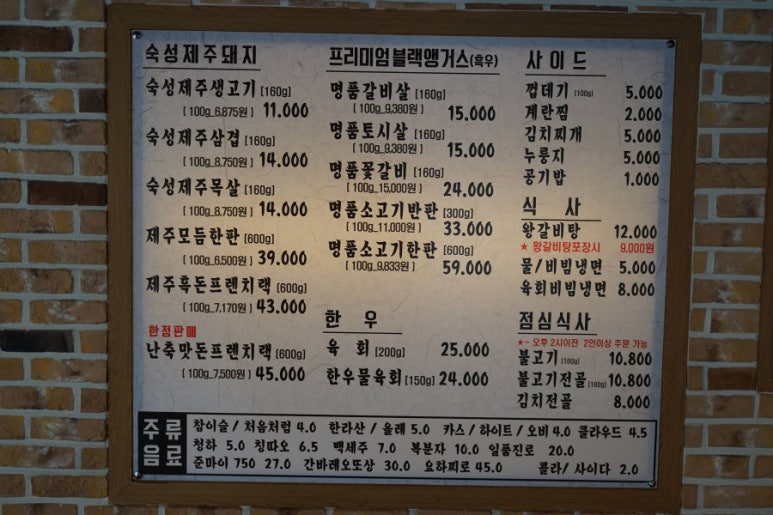 숙성제주돼지
숙성제주생고기 [160g]
[ 100g_6,875원 ] 11.000
숙성제주삼겹 [160g]
[ 100g_8,750원 ] 14.000
숙성제주목살 [160g]
[ 100g_8,750원 ] 14.000
제주모듬한판 [600g]
[ 100g_6,500원 ] 39.000
제주흑돈프렌치랙 [600g]
[ 100g_7,170원 ] 43.000
한정판매
난축맛돈프렌치랙 [600g]
[ 100g_7,500원 ] 45.000
프리미엄블랙앵거스(흑우)
명품갈비살 [160g]
[ 100g_9,380원 ] 15.000
명품토시살 [160g]
[ 100g_9,380원 ] 15.000
명품꽃갈비 [160g]
[ 100g_15,000원 ] 24.000
명품소고기반판 [300g]
[ 100g_11,000원 ] 33.000
명품소고기한판 [600g]
[ 100g_9,833원 ] 59.000
한우
육회 [200g] 25.000
한우물육회 [150g] 24.000
사이드
껍데기 [160g] 5.000
계란찜 2.000
김치찌개 5.000
누룽지 5.000
공기밥 1.000
식사
왕갈비탕 12.000
★ 왕갈비탕포장시 9.000원
물/비빔냉면 5.000
육회비빔냉면 8.000
점심식사
★~ 오후 2시이전 2인이상 주문 가능
불고기 [160g] 10.800
불고기전골 [160g] 10.800
김치전골 8.000
주류
음료
참이슬/처음처럼 4.0 한라산/올레 5.0 카스/하이트/오비 4.0 클라우드 4.5
청하 5.0 칭따오 6.5 백세주 7.0 복분자 10.0 일품진로 20.0
준마이 750 27.0 간바레오또상 30.0 요하찌로 45.0 콜라/사이다 2.0